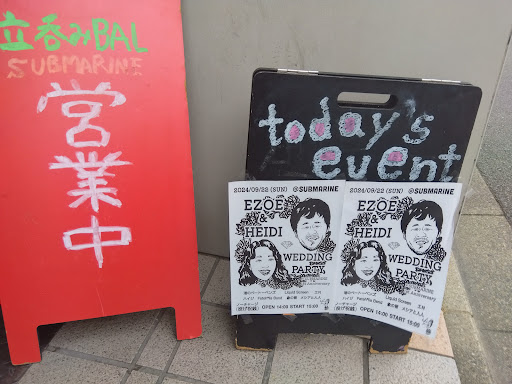 立呑みBAL
SUBMARINE
営業中
today's
event
2024/09/22 (SUN) @SUBMARINE
EZOE
&
HEIDI
WEDDING
PARTY
Liquid Screen
OPEN 14:00 START 15:00
2024/09/22 (SUN) @SUBMARINE
EZOE
&
HEIDI
WEDDING
PARTY
Liquid Screen
OPEN 14:00 START 15:00